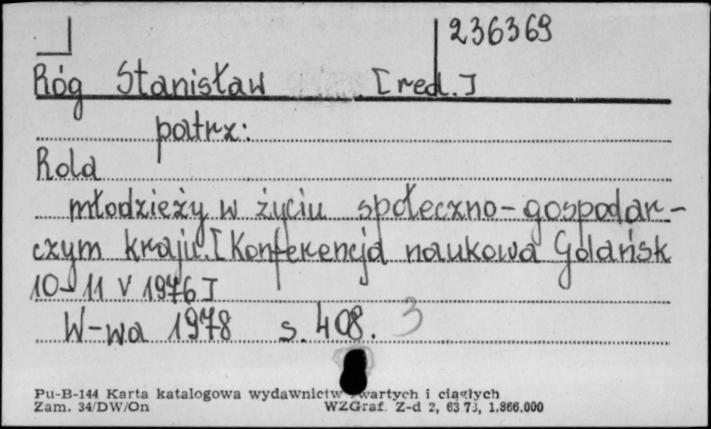 236369
Róg Stanisław [red.]
patrz:
Rola
młodzieży w życiu społeczno-gospodar-
czym kraju. [Konferencja naukowa Gdańsk
10-11 V 1976]
W-wa 1978 s. 408. 3
Pu-B-144 Karta katalogowa wydawnictw zwartych i ciągłych
Zam. 34/DW/On WZGraf. Z-d 2, 63 73, 1.866.000